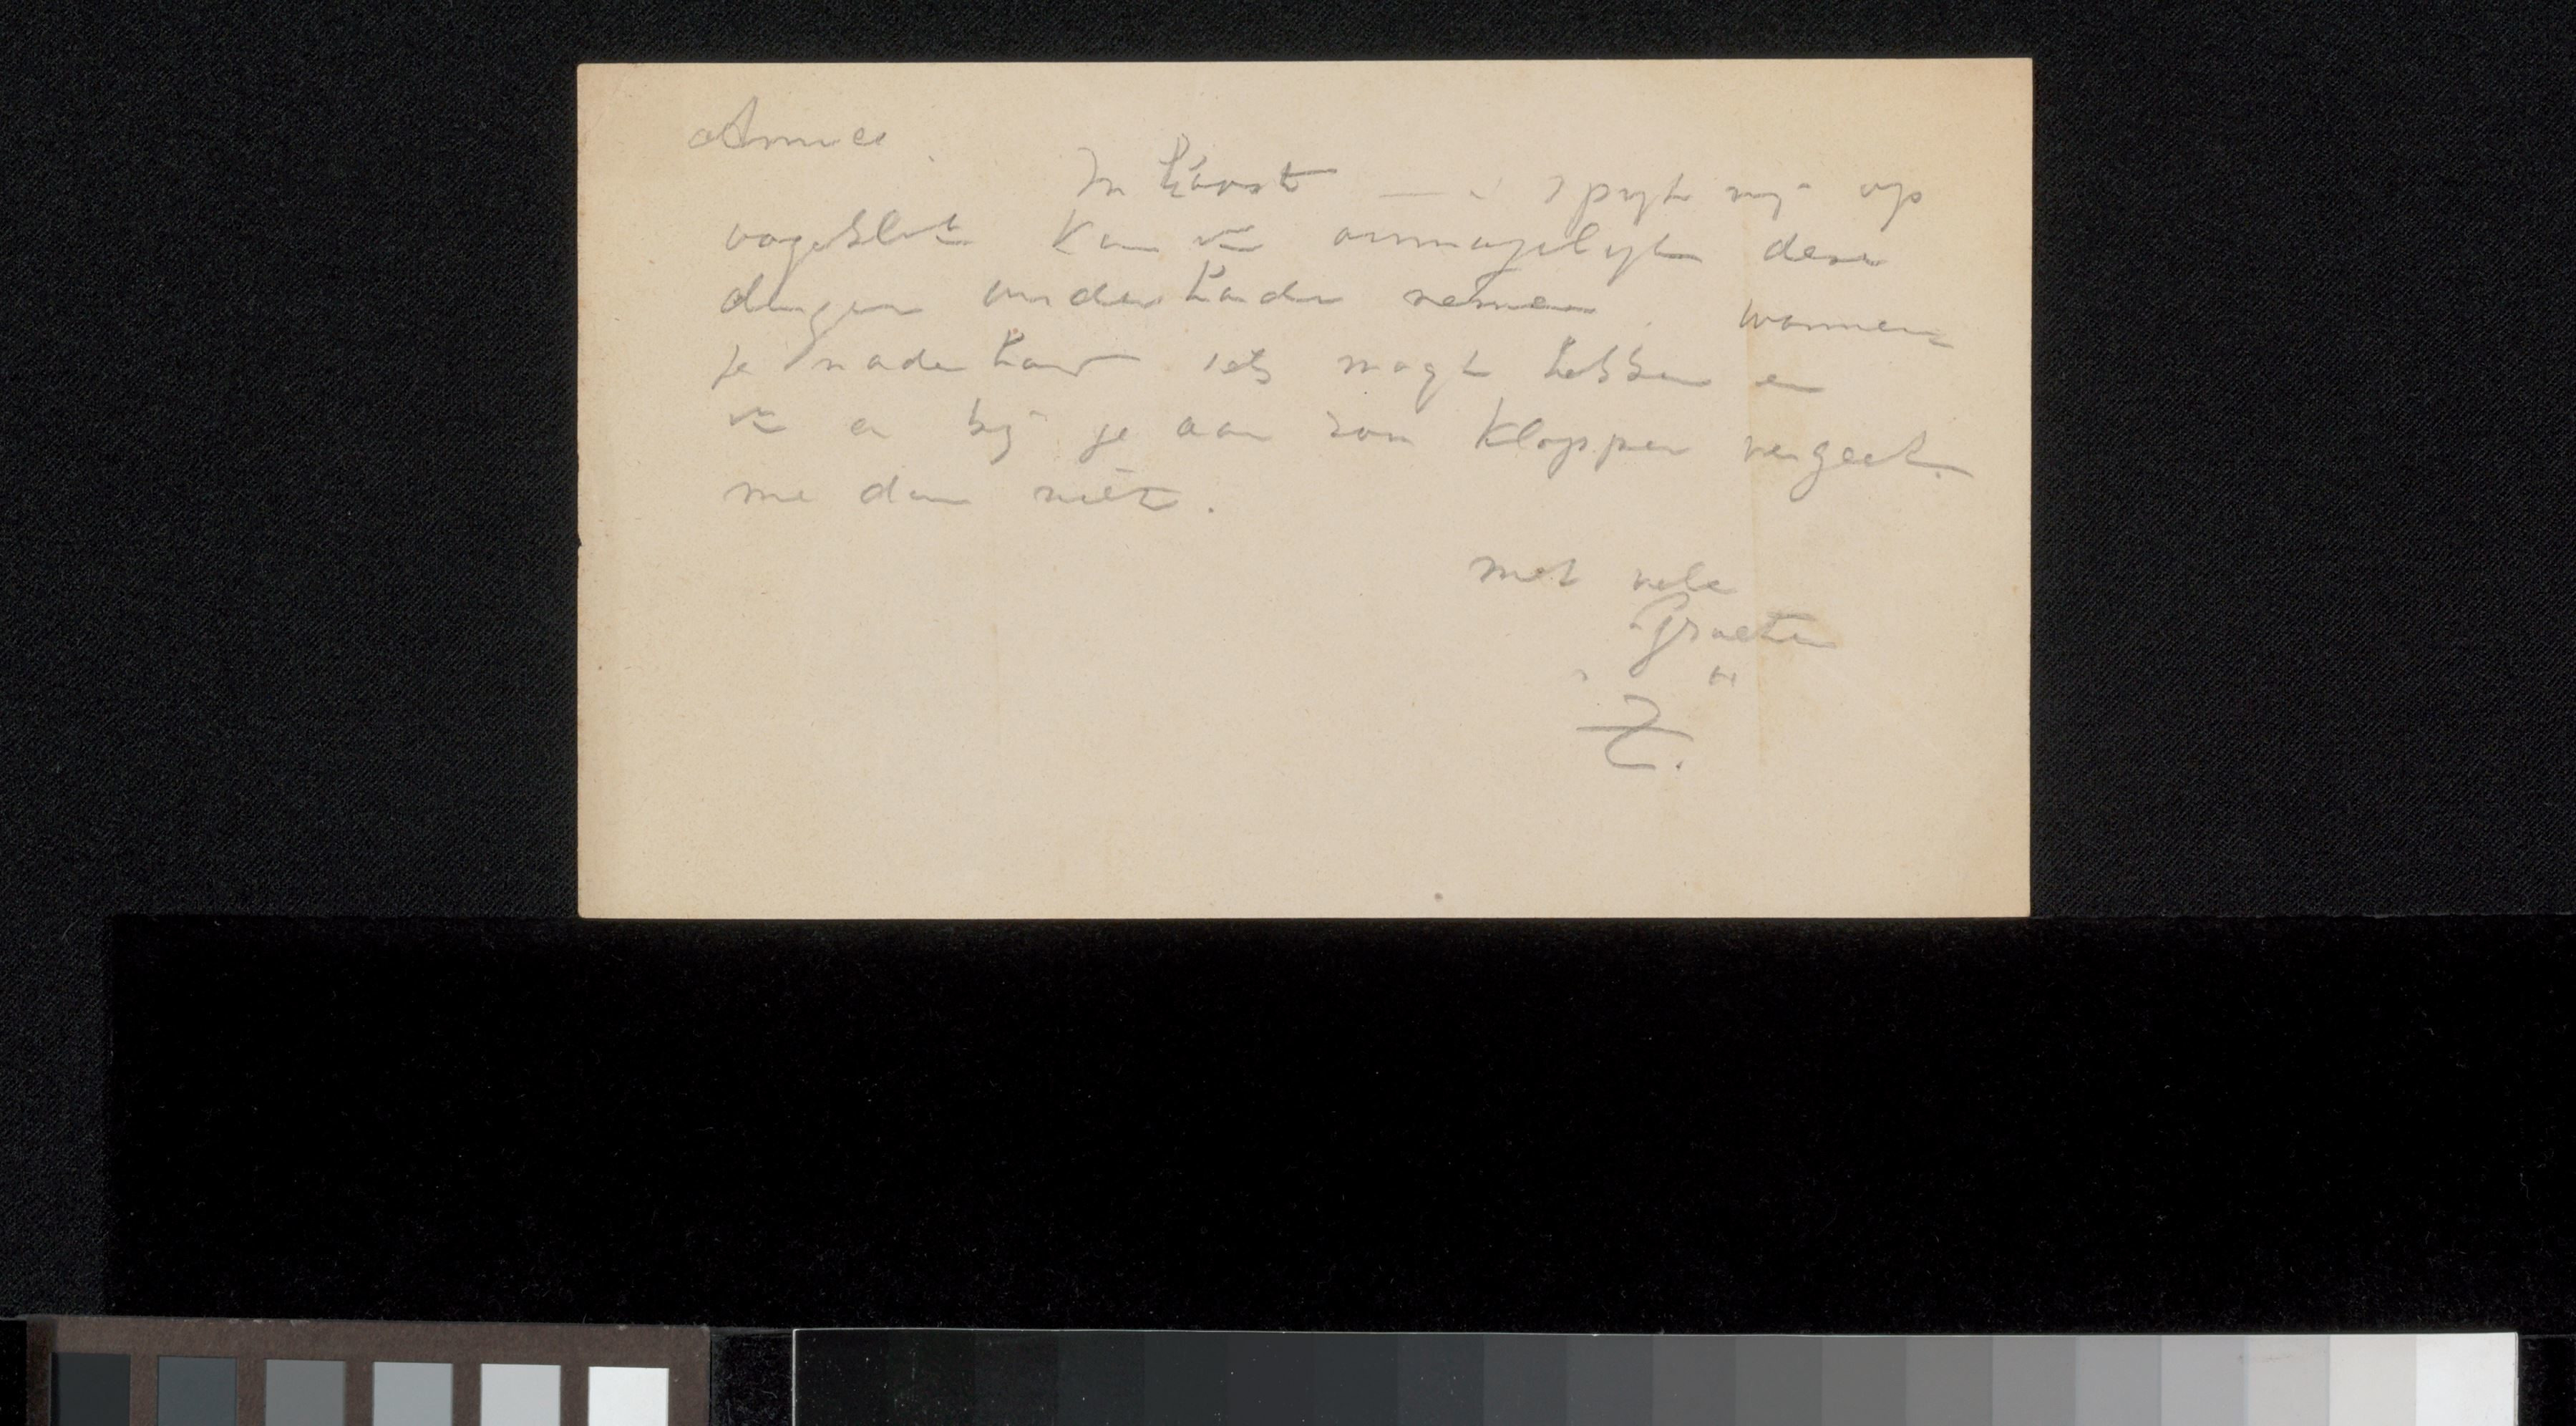 Amice.
In haast — 't spijt mij op
oogenblik kan ik onmogelijk deze
dingen onder handen nemen. Wanneer
je naderhand iets mogt hebben en
ik er bij je aan zou kloppen vergeet
me dan niet.
met vele
Groeten
Z.